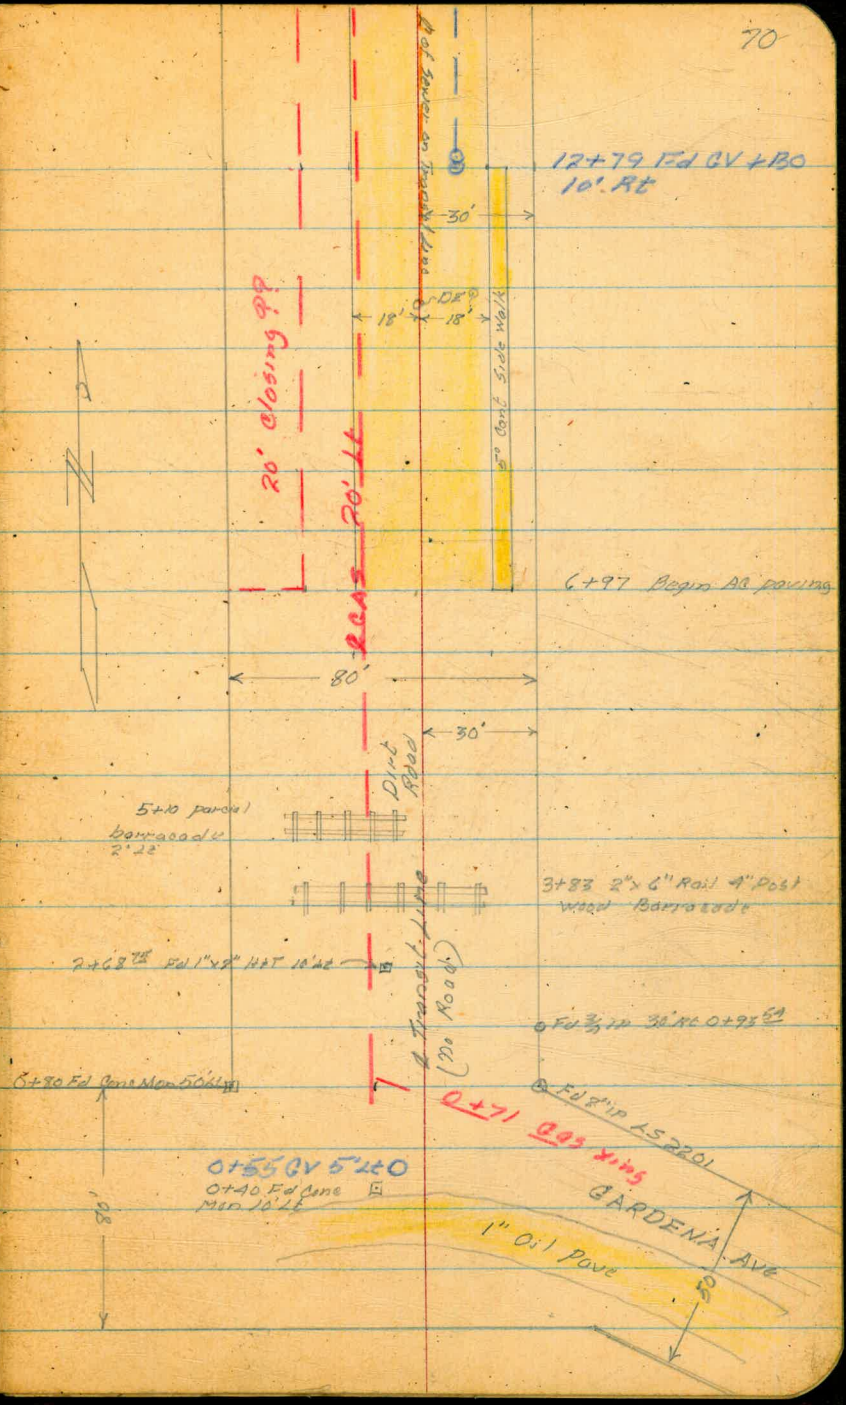 70
℄ of Sewer on Transit Line
12+79 Fd GV + BO
10' Rt
30'
18'
18'
20' Closing ??
5° Cont Side Walk
℄ GAS 20' Lt
N
6+97 Begin AC paving
80'
30'
Dirt
Road
5+10 parcial
barracade
2' Lt
3+83 2"x6" Rail 4" Post
Wood Barracade
2+68 Fd 1"x2" H&T 10' Lt
℄ Transit Line
(No Road)
Fd 3/4 IP 30' Rt 0+93 54
0+80 Fd Conc Mon 50' Lt
Fd 2" IP LS 2201
0+71 Gas xing
0+55 GV 5' Lt O
0+40 Fd Conc
Mon 10' Lt
80'
GARDENA Ave
1" Oil Pave
50'